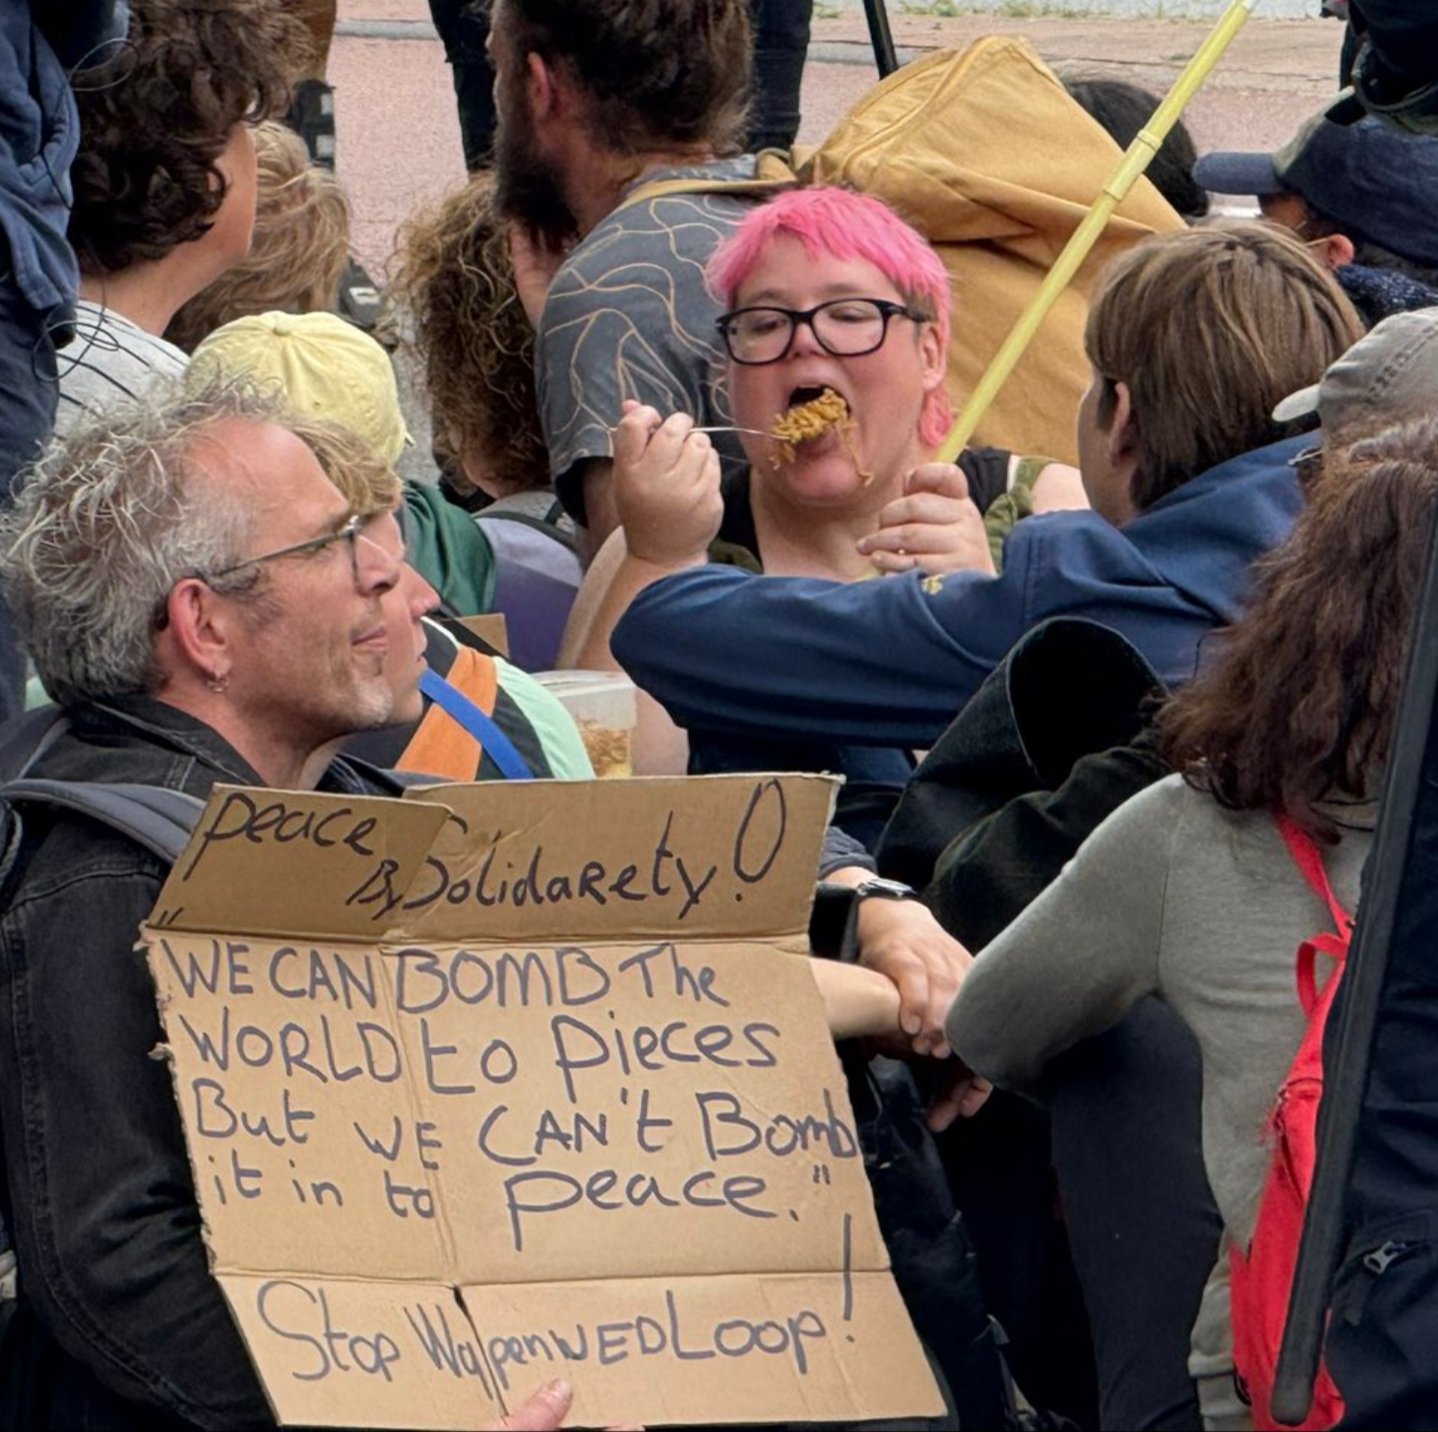 peace
By Solidarety!
"WE CAN BOMB The
WORLD to pieces
But WE CAN't Bomb
it in to peace."
Stop WapenWEDLOOP!